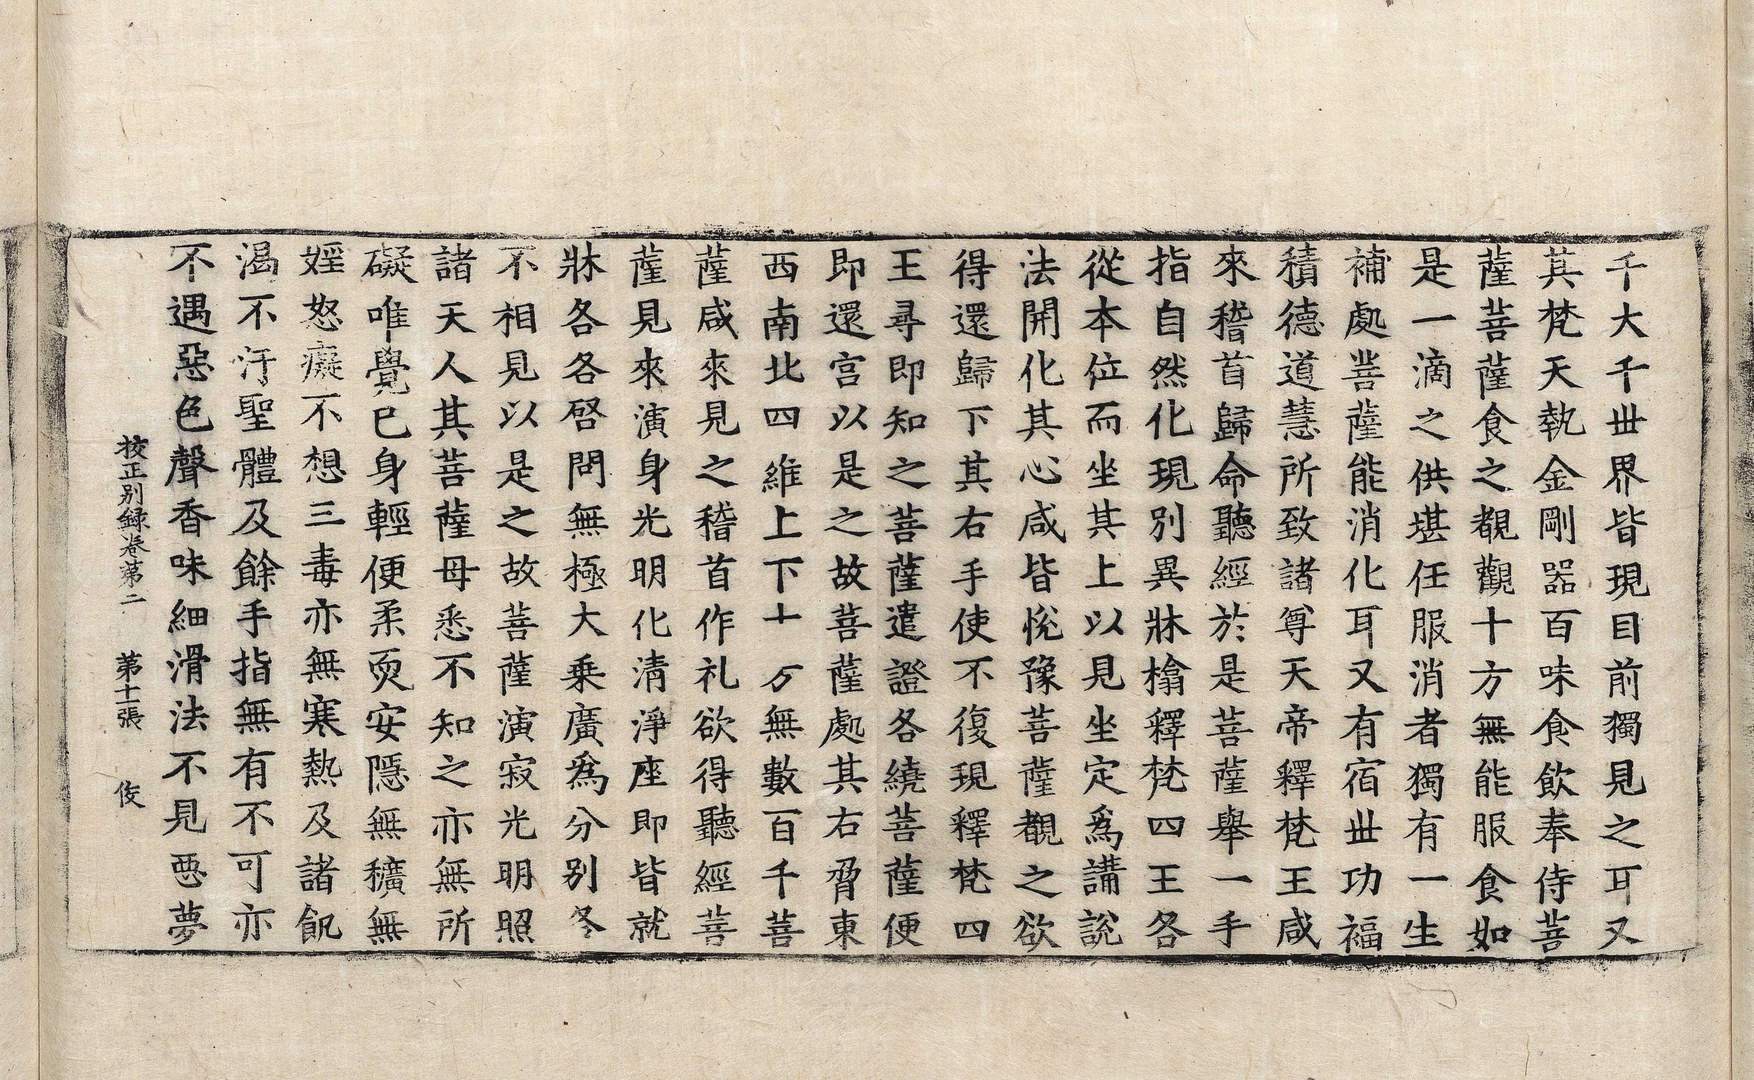 千大千丗界皆現目前獨見之耳又
其梵天執金剛器百味食飲奉侍菩
薩菩薩食之覩觀十方無能服食如
是一滴之供堪任服消者獨有一生
補處菩薩能消化耳又有宿丗功福
積德道慧所致諸尊天帝釋梵王咸
來稽首歸命聽經於是菩薩舉一手
指自然化現別異牀榻釋梵四王各
從本位而坐其上以見坐定爲講說
法開化其心咸皆悅豫菩薩覩之欲
得還歸下其右手使不復現釋梵四
王尋即知之菩薩遣證各繞菩薩便
即還宮以是之故菩薩處其右脅東
西南北四維上下十万無數百千菩
薩咸來見之稽首作礼欲得聽經菩
薩見來演身光明化清淨座即皆就
牀各各啓問無極大乗廣爲分別各
不相見以是之故菩薩演寂光明照
諸天人其菩薩母悉不知之亦無所
礙唯覺已身輕便柔耎安隱無穬無
婬怒癡不想三毒亦無寒熱及諸飢
渴不汙聖體及餘手指無有不可亦
不遇惡色聲香味細滑法不見惡夢
挍正別録卷苐二　苐十一張　俊